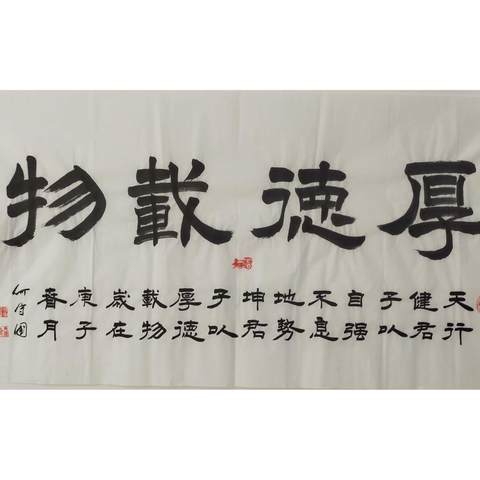 厚德載物
天行
健君
子以
自强
不息
地勢
坤君
子以
厚德
載物
歲在
庚子
春月